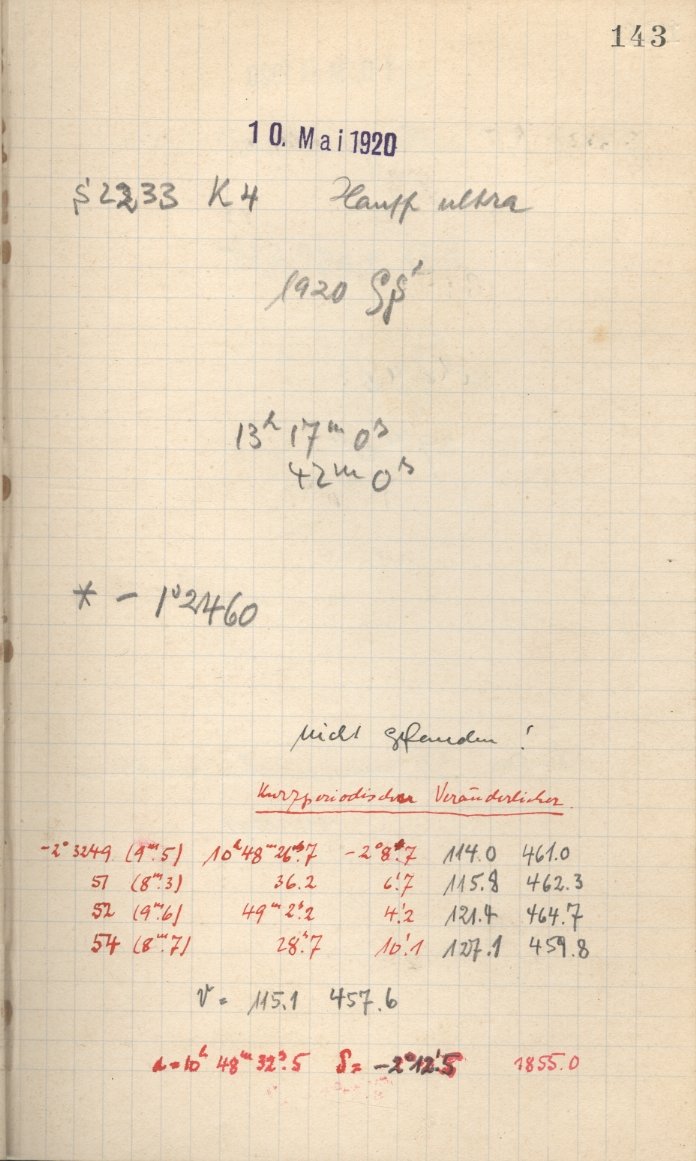 143
10. Mai 1920
2233 K4 Hauff ultra
1920
13ʰ 17ᵐ 0ˢ
42ᵐ 0ˢ
* – 1° 2460
nicht gefunden!
Kurzperiodischer Veränderlicher.
-2° 3249 (9ᵐ.5) 10ʰ 48ᵐ 26ˢ.7 -2° 8'.7 114.0 461.0
51 (8ᵐ.3) 36.2 6'.7 115.8 462.3
52 (9ᵐ.6) 49ᵐ 2ˢ.2 4'.2 121.4 464.7
54 (8ᵐ.7) 28ˢ.7 10'.1 127.1 459.8
v = 115.1 457.6
α = 10ʰ 48ᵐ 32ˢ.5 δ = -2° 12'.5 1855.0